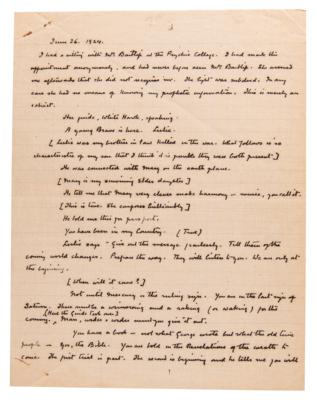 June 26. 1924.
I had a sitting with Mrs Bartlip at the Psychic College. I had made this
appointment anonymously, and had never before seen Mrs Bartlip. She assured
me afterwards that she did not recognise me. The light was subdued. In any
case she had no means of knowing my prophetic information. This is merely an
extract.
Her guide, White Hawk, speaking.
A young Brave is here. Leslie.
[Leslie was my brother in law killed in the war. What follows is so
characteristic of my son that I think it is possible they were both present]
He was connected with Mary on the earth plane.
[Mary is my surviving elder daughter]
He tell me that Mary very clever make harmony or music, you call it.
[This is true. She composes brilliantly]
He told me this for passport.
You have been in my Country. (True)
Leslie says "Give out the message fearlessly. Tell them of the
coming world changes. Prepare the way. They will listen to you. We are only at
the beginning.
[When will it come?]
Not until Mercury is the ruling sign. You are in the last sign of
Saturn. There must be a winnowing and a raking (or waking) for the
coming. (Here the Guide took over) Man, under orders must you give it out.
You have a book – not what George wrote but what the old time
people – Yes, the Bible. You are told in the Revelations of the wrath to
come. The first trial is past. The second is beginning and he tells me you will